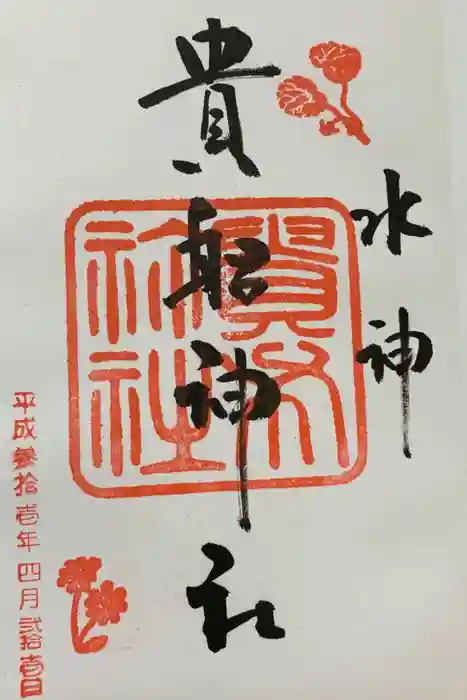 水神
貴船神社
貴布祢社
平成参拾壱年四月弐拾壱日